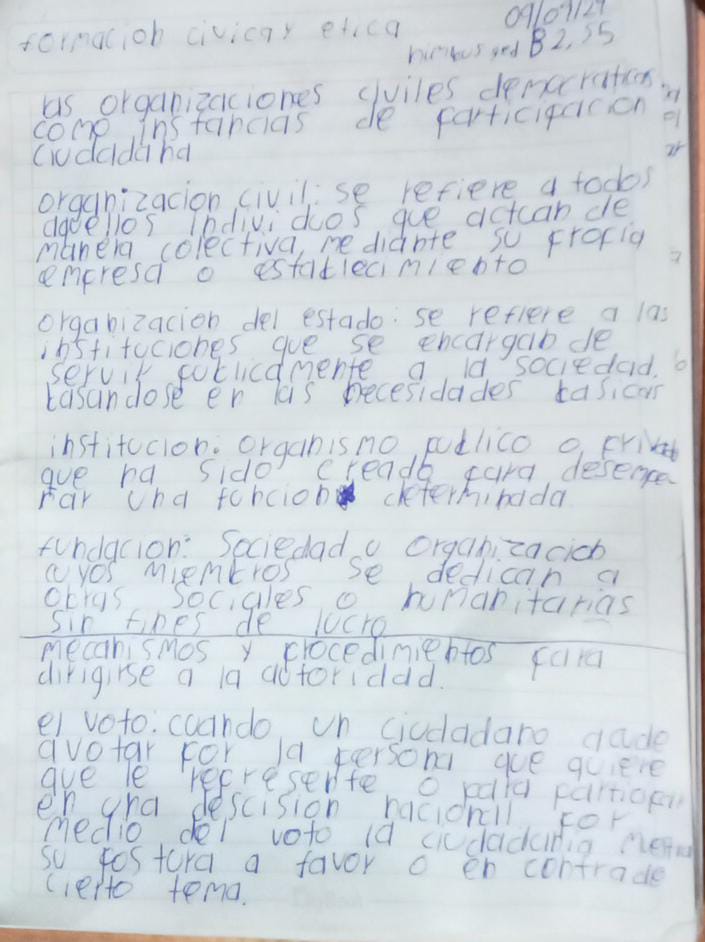 formacion civica y etica
B2, S5
las organizaciones civiles democraticas
como instancias de participacion
ciudadana
organizacion civil: se refiere a todos
aquellos individuos que actuan de
manera colectiva, mediante su propia
empresa o establecimiento
organizacion del estado: se refiere a las
instituciones que se encargan de
servir publicamente a la sociedad.
basandose en las necesidades basicas
institucion: organismo publico o privado
que ha sido creado para desempe
ñar una funcion determinada
fundacion: Sociedad u organizacion
cuyos miembros se dedican a
obras sociales o humanitarias
sin fines de lucro
mecanismos y procedimientos para
dirigirse a la autoridad.
el voto: cuando un ciudadano acude
a votar por la persona que quiere
que le represente o para participar
en una descision nacional por
medio del voto la ciudadania
su postura a favor o en contra de
cierto tema.